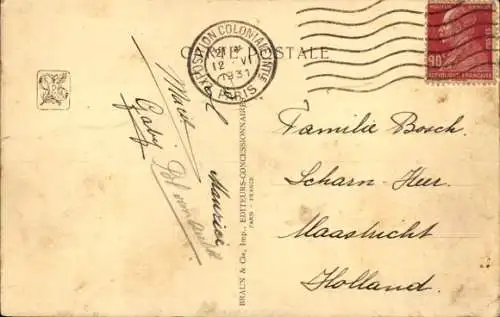 CARTE POSTALE
EXPOSITION COLONIALE INTle
12 · VI
1931
PARIS
90c
REPUBLIQUE FRANÇAISE
Familie Bosch.
Scharn-Heer.
Maastricht
Holland.
Gaby
Maurice
BRAUN & Cie, Imp., EDITEURS-CONCESSIONNAIRES
PARIS - FRANCE